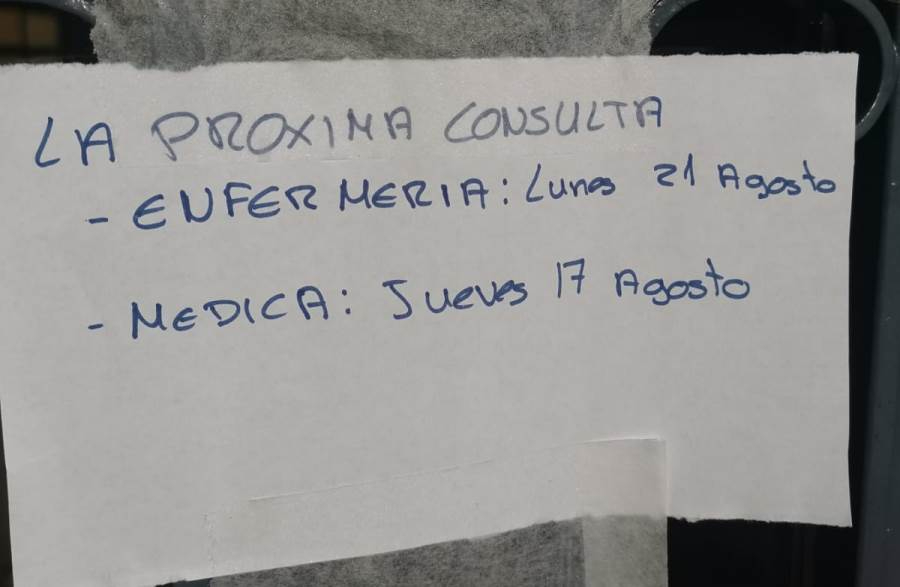 LA PROXIMA CONSULTA
- ENFERMERIA: Lunes 21 Agosto
- MEDICA: Jueves 17 Agosto